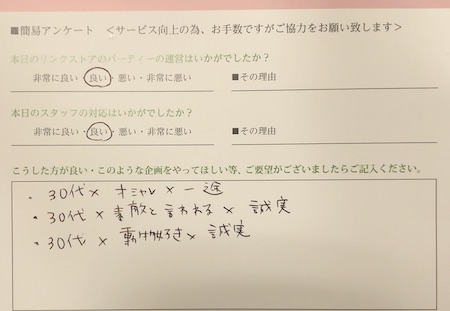 ■簡易アンケート ＜サービス向上の為、お手数ですがご協力をお願い致します＞
本日のリンクストアのパーティーの運営はいかがでしたか？
非常に良い・良い・悪い・非常に悪い ■その理由
本日のスタッフの対応はいかがでしたか？
非常に良い・良い・悪い・非常に悪い ■その理由
こうした方が良い・このような企画をやってほしい等、ご要望がございましたらご記入ください。
・30代×オシャレ×一途
・30代×素敵と言われる×誠実
・30代×動物好き×誠実